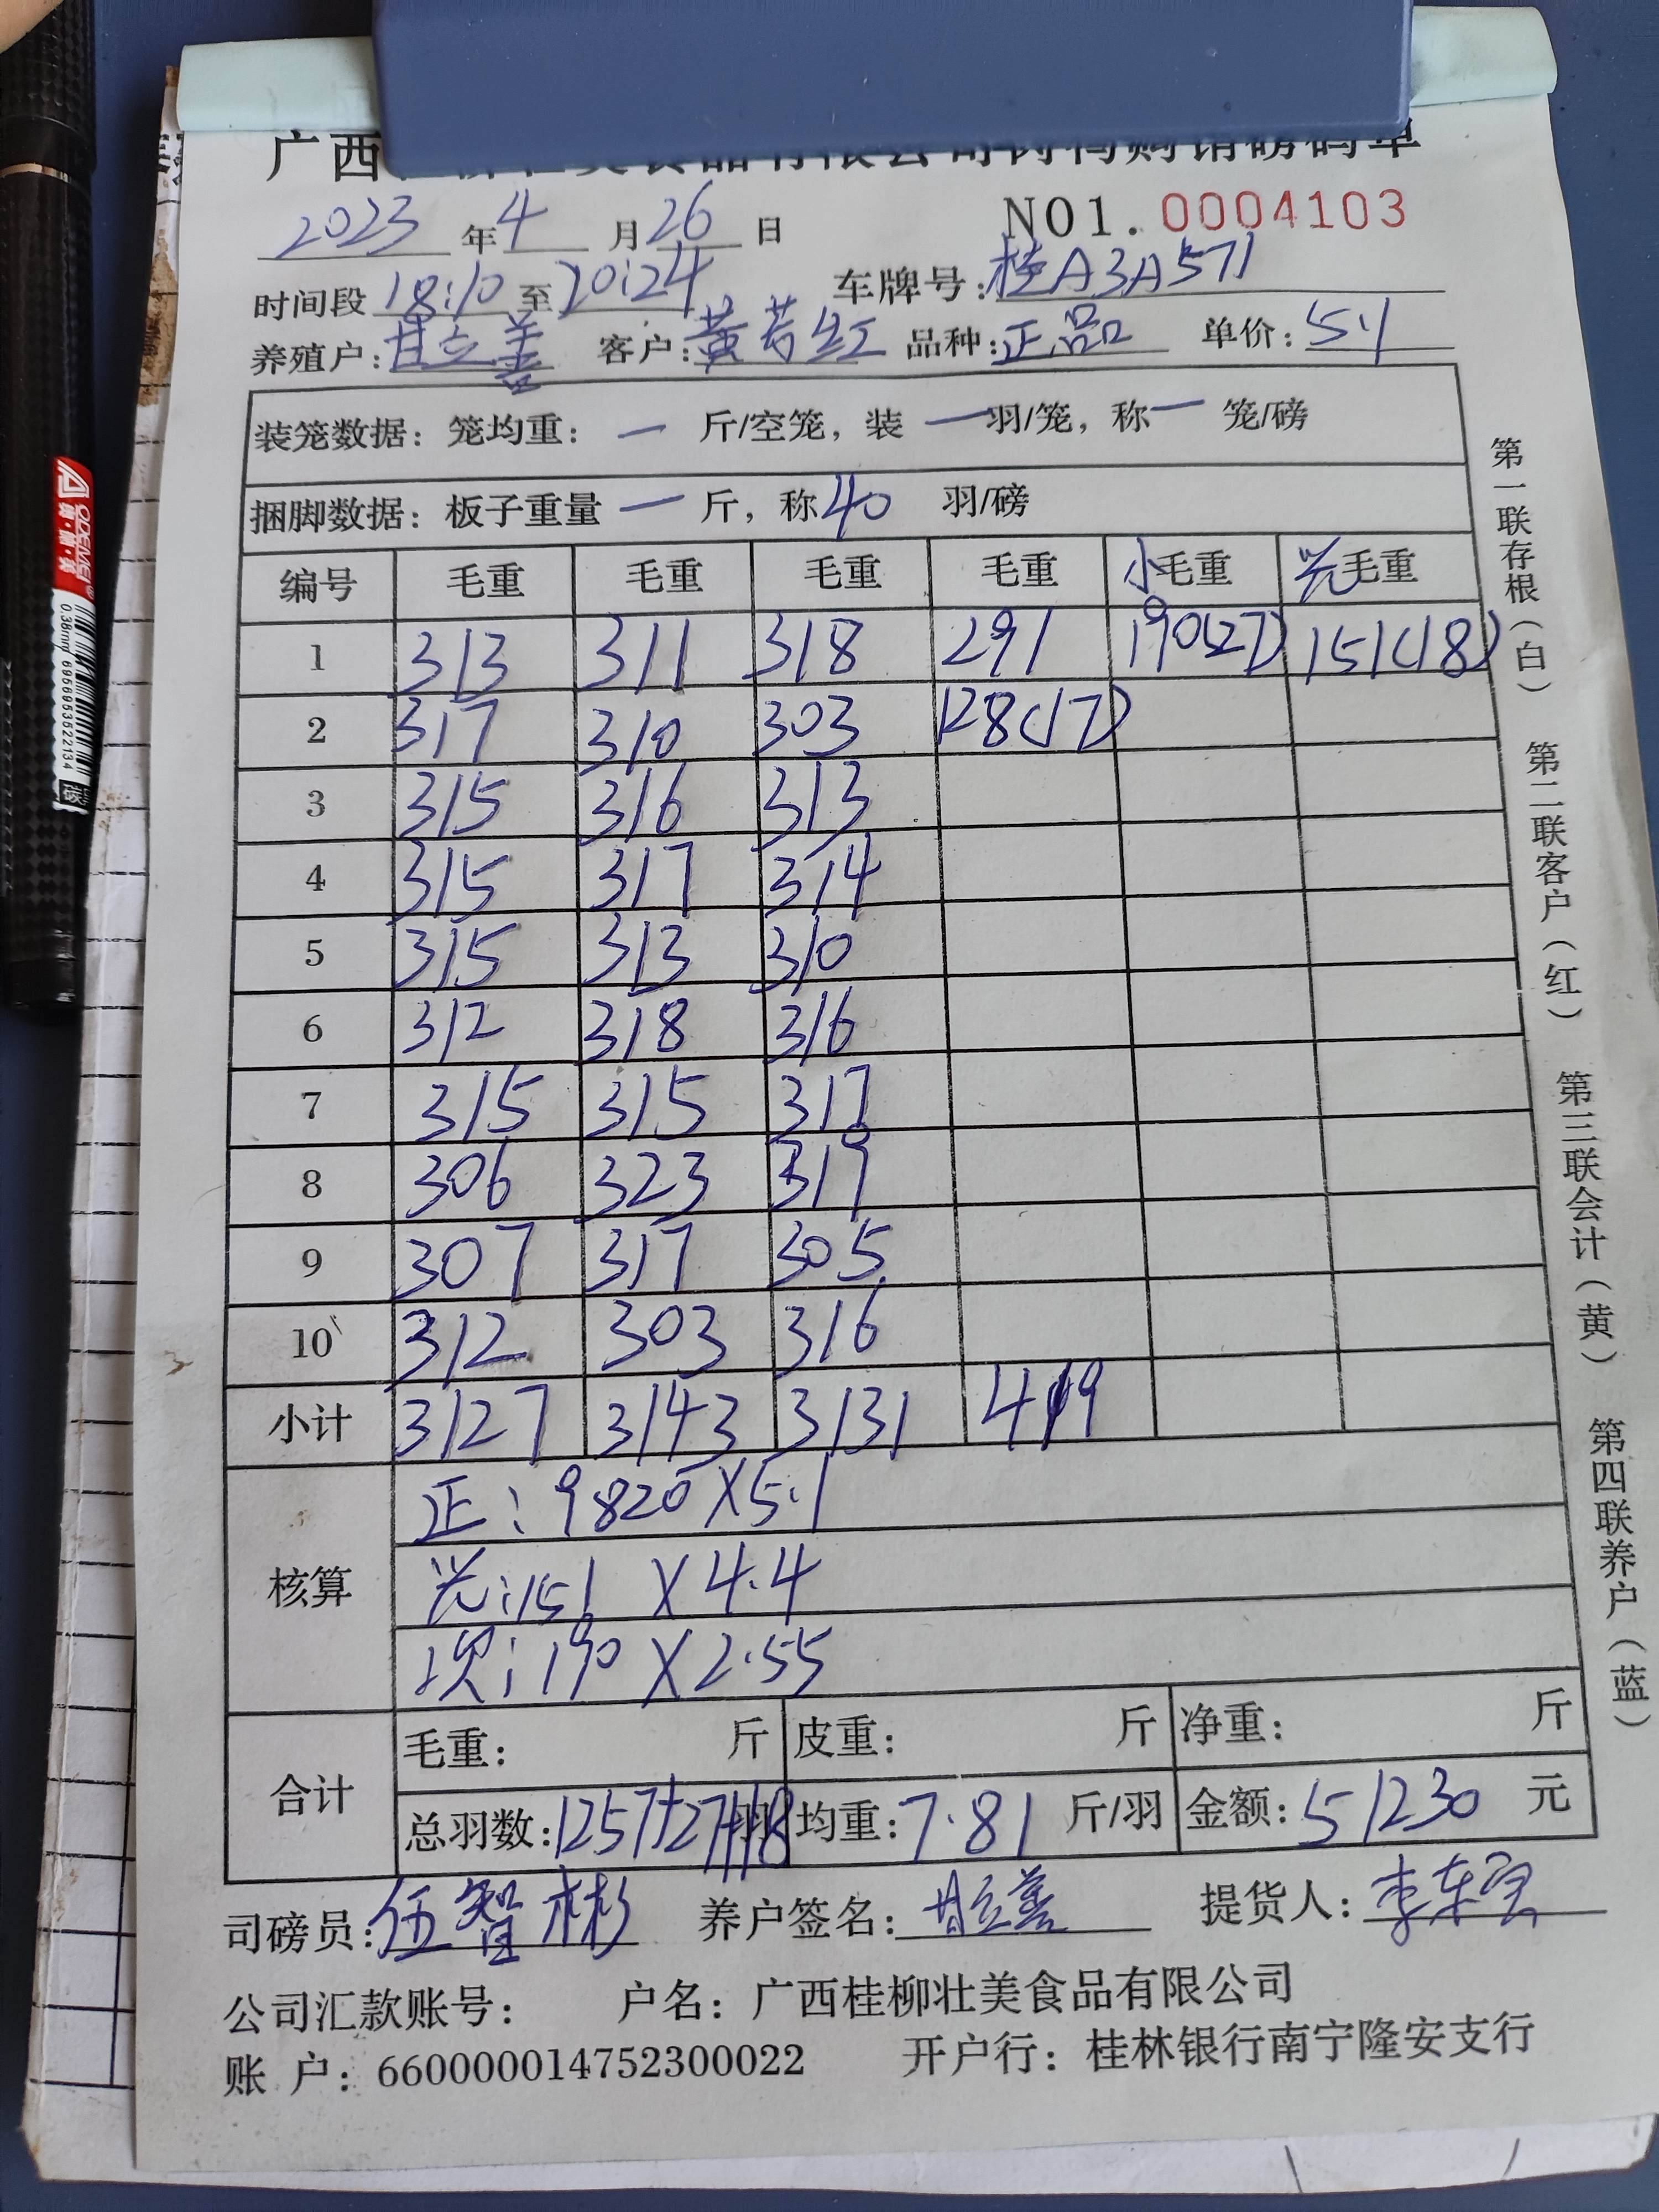 广西
NO1. 0004103
2023 年 4 月 26 日
时间段 18:10 至 20:24 车牌号: 桂A3A571
养殖户: 甘立善 客户: 黄芳红 品种: 正品 单价: 5.1
装笼数据: 笼均重: 一 斤/空笼, 装 一 羽/笼, 称 一 笼/磅
捆脚数据: 板子重量 一 斤, 称 40 羽/磅
编号 毛重 毛重 毛重 毛重 小毛重 光毛重
1 313 311 318 291 190(27) 151(18)
2 317 310 303 128(17)
3 315 316 313
4 315 317 314
5 315 313 310
6 312 318 316
7 315 315 317
8 306 323 319
9 307 317 305
10 312 303 316
小计 3127 3143 3131 419
核算
正: 9820 X 5.1
光: 151 X 4.4
次: 190 X 2.55
合计
毛重: 斤 皮重: 斤 净重: 斤
总羽数: 1257+27+18 羽 均重: 7.81 斤/羽 金额: 51230 元
司磅员: 伍智彬 养户签名: 甘立善 提货人:
公司汇款账号: 户名: 广西桂柳壮美食品有限公司
账 户: 660000014752300022 开户行: 桂林银行南宁隆安支行
第一联存根(白) 第二联客户(红) 第三联会计(黄) 第四联养户(蓝)
QDEMEI
0.38mm
6956953522134